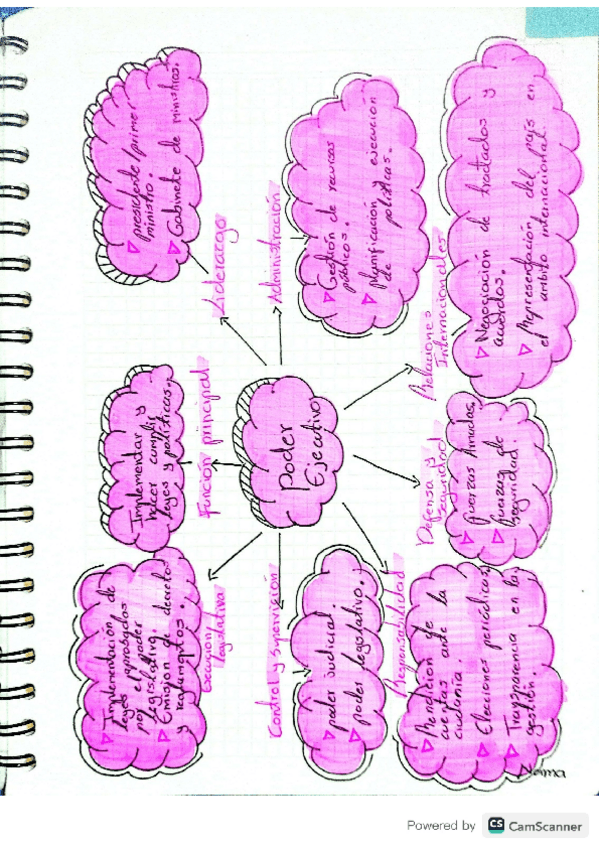 Poder
Ejecutivo
Función principal
Implementar y
hacer cumplir
leyes y políticas.
Liderazgo
presidente/primer
ministro.
Gabinete de ministros.
Administración
Gestión de recursos
públicos.
planificación y ejecución
de políticas.
Relaciones
Internacionales
Negociación de tractados y
acuerdos.
Representación del país en
el ámbito internacional.
Defensa y
seguridad
fuerzas Armadas.
fuerzas de
seguridad.
Responsabilidad
Rendición de
cuentas ante la
ciudanía.
Elecciones periódicas
Transparencia en la
gestión.
Control y supervición
poder Judicial.
poder legislativo.
Ejecución
legislativa
Implementación de
leyes aprobadas
por el poder
legislativo.
Emisión de decretos
y reglamentos.
Noima
Powered by CS CamScanner